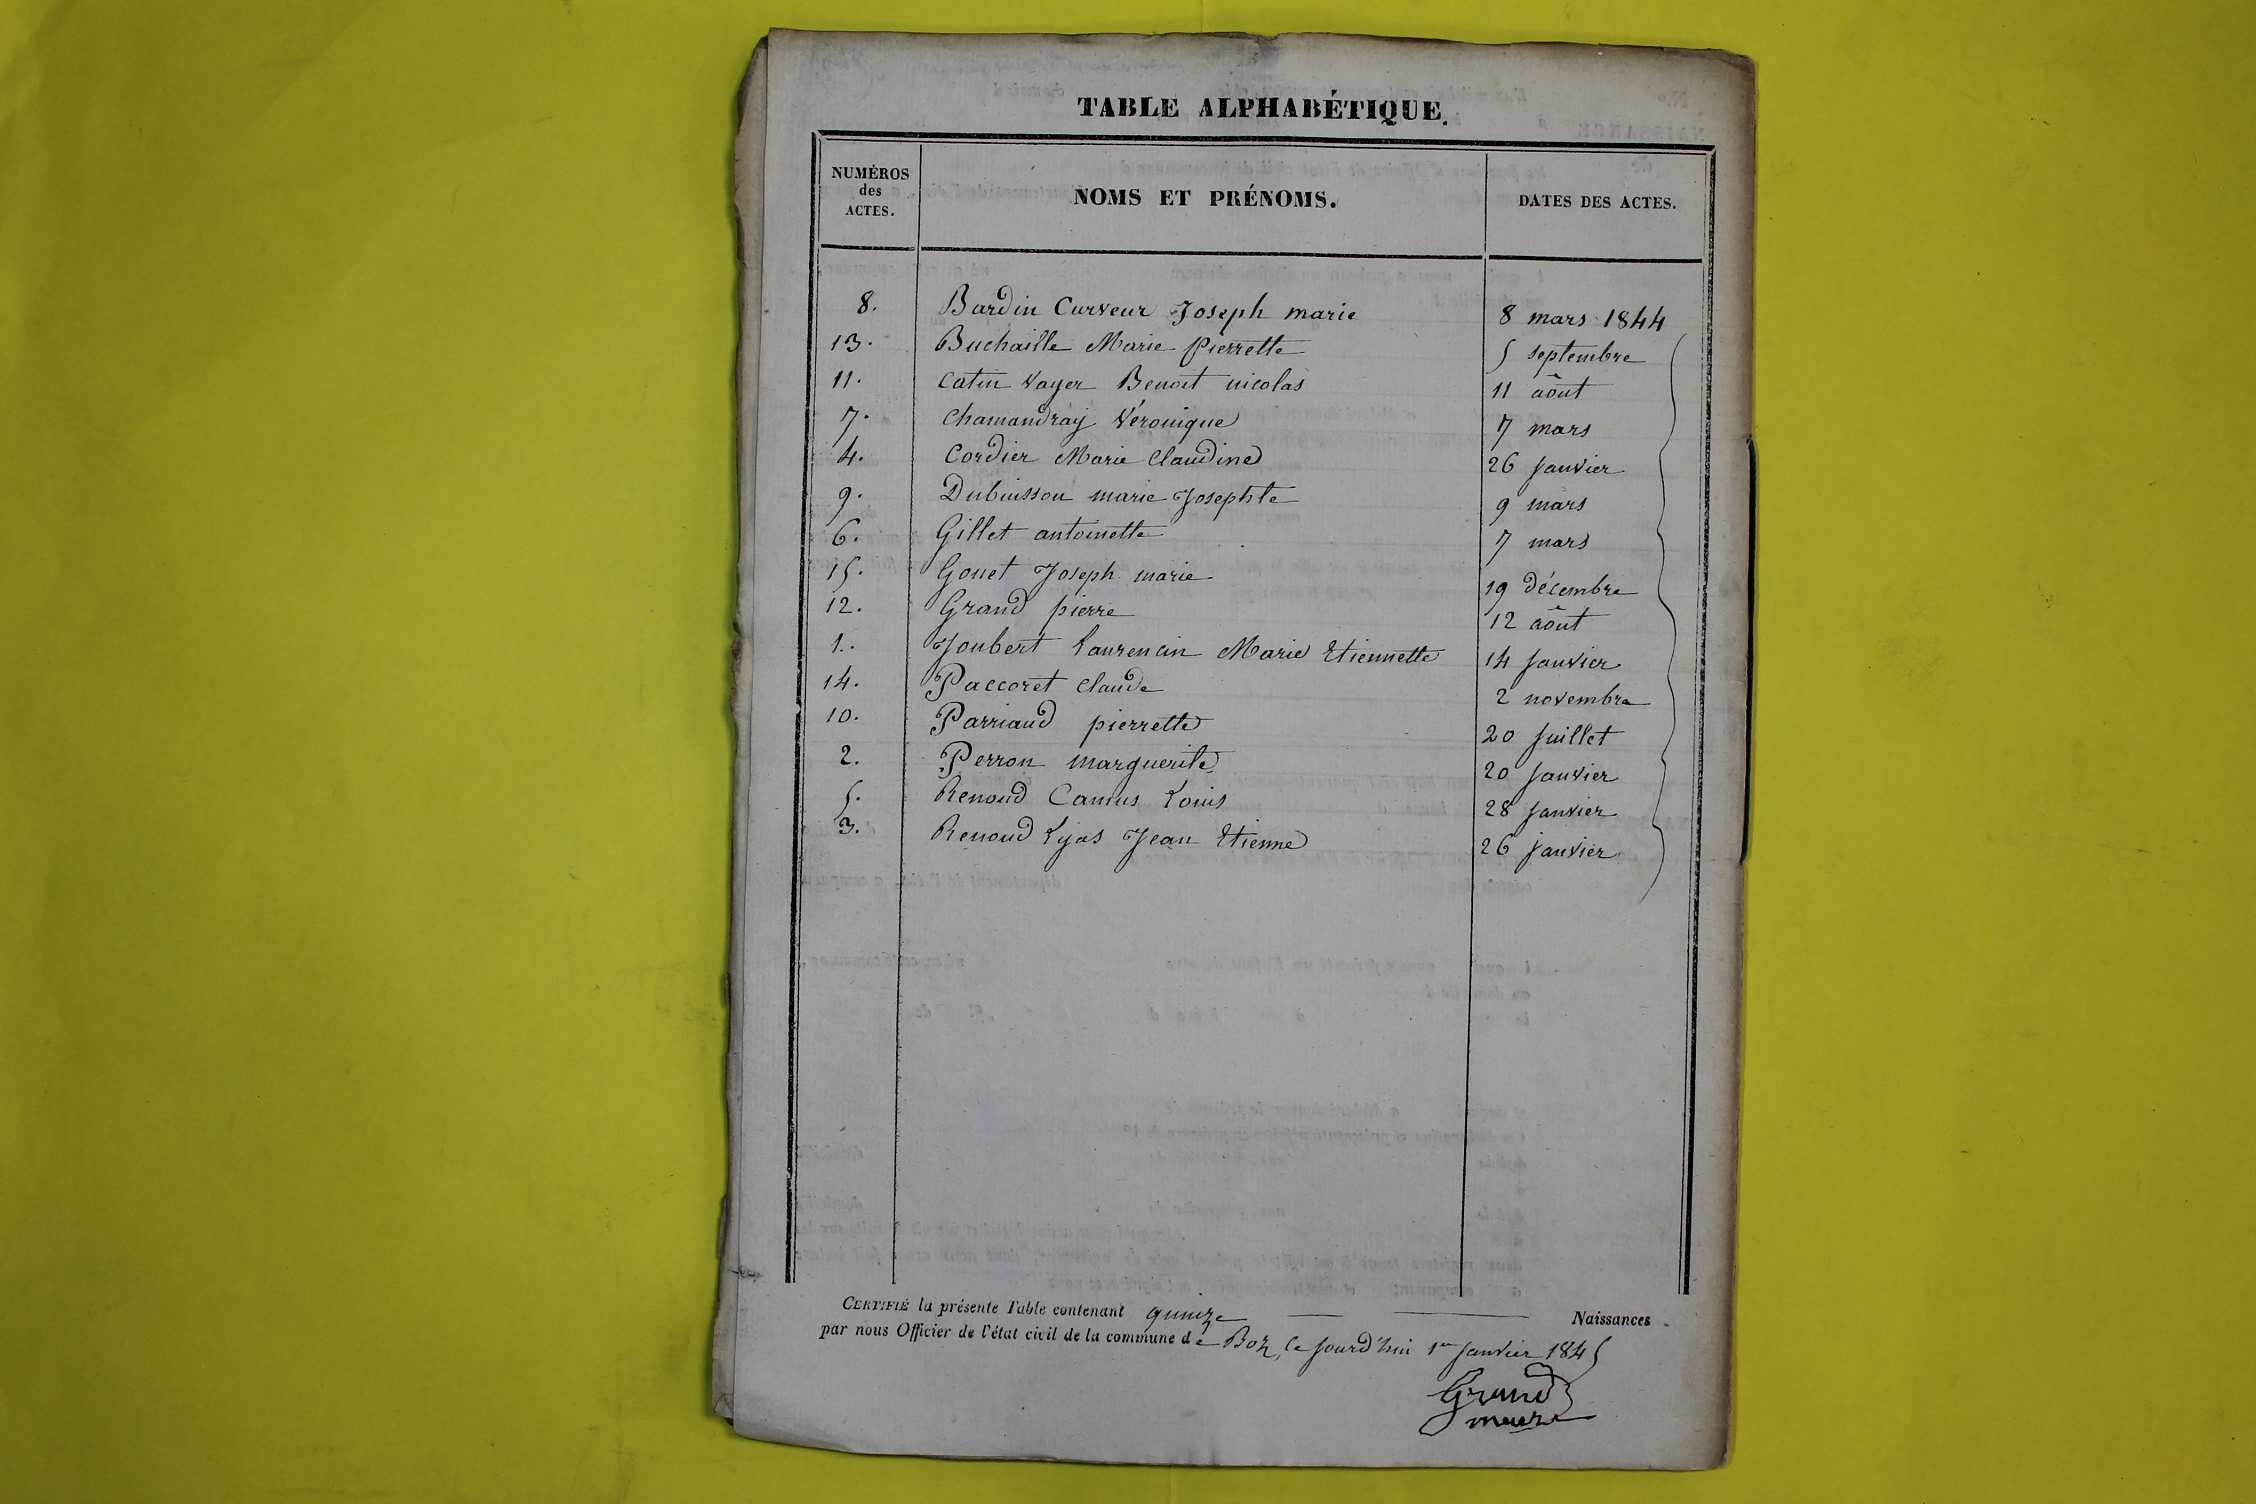 TABLE ALPHABÉTIQUE.
NUMÉROS des ACTES. NOMS ET PRÉNOMS. DATES DES ACTES.
8. Bardin Curveur Joseph marie 8 mars 1844
13. Buchaille Marie Pierrette 5 septembre
11. Catin Vayer Benoit nicolas 11 août
7. Chamandray Véronique 7 mars
4. Cordier Marie Claudine 26 Janvier
9. Dubuisson marie Josephte 9 mars
6. Gillet antoinette 7 mars
15. Gonet Joseph marie 19 décembre
12. Grand pierre 12 août
1. Joubert Laurencin Marie Etiennette 14 Janvier
14. Paccoret Claude 2 novembre
10. Parriaud pierrette 20 Juillet
2. Perron marguerite 20 Janvier
5. Renoud Camus Louis 28 Janvier
3. Renoud Lyas Jean Etienne 26 janvier
CERTIFIÉ la présente Table contenant quinze Naissances
par nous Officier de l'état civil de la commune de Boz, ce jourd'hui 1er Janvier 1845
Grand
maire